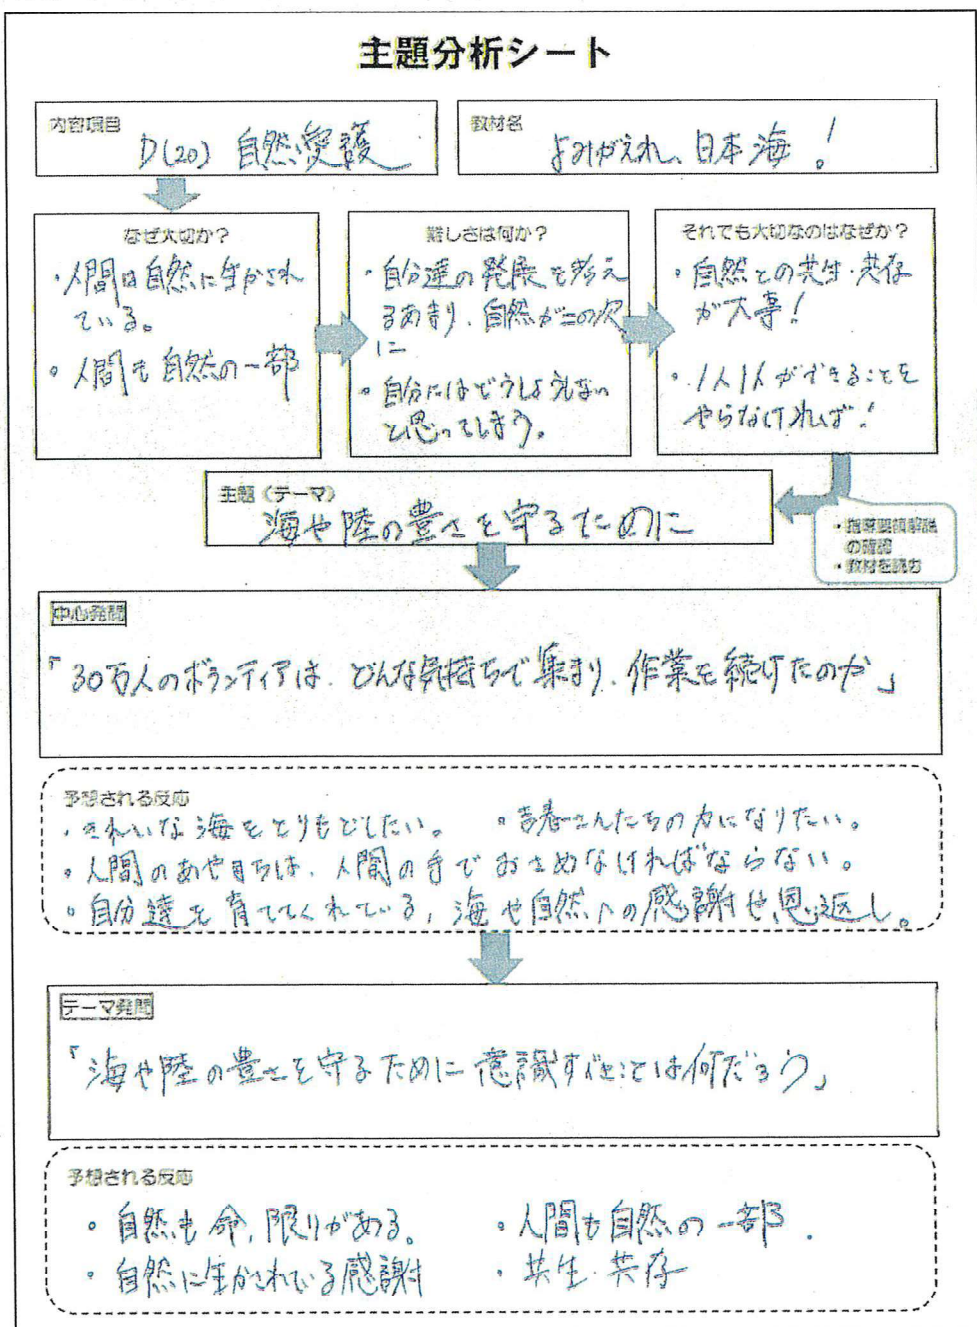 主題分析シート
内容項目
D(20) 自然愛護
教材名
よみがえれ、日本海!
なぜ大切か?
・人間は自然に生かされ
ている。
・人間も自然の一部
難しさは何か?
・自分達の発展を考え
るあまり、自然が二の次
に
・自分にはどうしようもない
と思ってしまう。
それでも大切なのはなぜか?
・自然との共生・共存
が大事!
・1人1人ができることを
やらなければ!
主題(テーマ)
海や陸の豊さを守るために
・指導要領解説
の確認
・教材を読む
中心発問
「30万人のボランティアは、どんな気持ちで集まり、作業を続けたのか」
予想される反応
・きれいな海をとりもどしたい。
・さんたちの力になりたい。
・人間のあやまちは、人間の手でおさめなければならない。
・自分達を育ててくれている、海や自然への感謝や恩返し。
テーマ発問
「海や陸の豊さを守るために意識すべきことは何だろう」
予想される反応
・自然も命、限りがある。
・人間も自然の一部.
・自然に生かされている感謝
・共生・共存